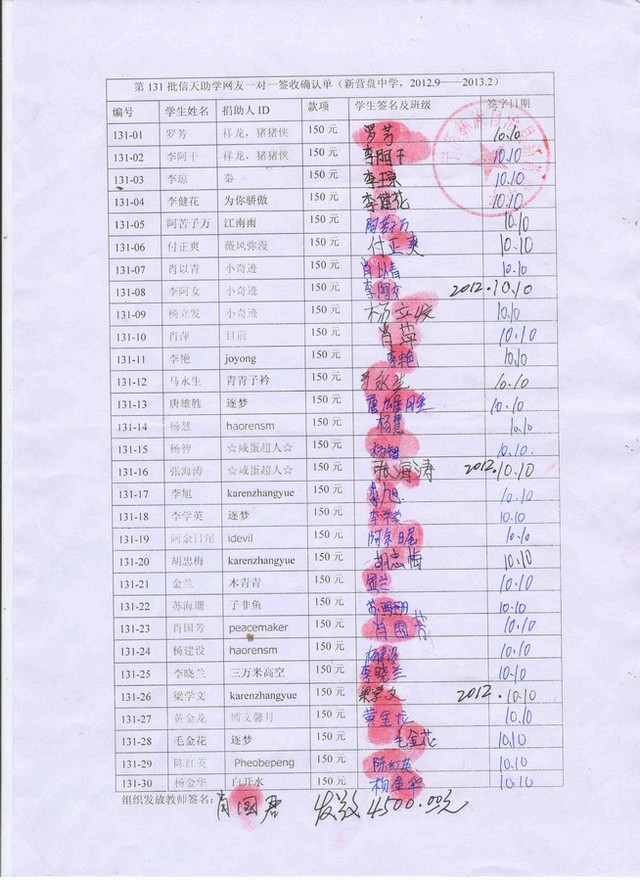 第 131 批信天助学网友一对一签收确认单（新营盘中学，2012.9——2013.2）
编号 学生姓名 捐助人 ID 款项 学生签名及班级 签字日期
131-01 罗芳 祥龙，猪猪侠 150 元 罗芳 10.10
131-02 李阿干 祥龙，猪猪侠 150 元 李阿干 10.10
131-03 李琼 秦 150 元 李琼 10.10
131-04 李健花 为你骄傲 150 元 李健花 10.10
131-05 阿苦子万 江南雨 150 元 10.10
131-06 付正爽 薇风弥漫 150 元 付正爽 10.10
131-07 肖以青 小奇迹 150 元 肖以青 10.10
131-08 李阿女 小奇迹 150 元 李阿女 2012.10.10
131-09 杨立发 小奇迹 150 元 杨立发 10.10
131-10 肖萍 目前 150 元 肖萍 10.10
131-11 李艳 joyong 150 元 李艳 10.10
131-12 马永生 青青子衿 150 元 马永生 10.10
131-13 唐雄胜 逐梦 150 元 唐雄胜 10.10
131-14 杨慧 haorensm 150 元 杨慧 10.10
131-15 杨智 ☆咸蛋超人☆ 150 元 杨智 10.10.
131-16 张海涛 ☆咸蛋超人☆ 150 元 张海涛 2012.10.10
131-17 李旭 karenzhangyue 150 元 李旭 10.10
131-18 李学英 逐梦 150 元 李学英 10.10
131-19 阿余日尾 idevil 150 元 阿余日尾 10.10
131-20 胡忠梅 karenzhangyue 150 元 胡忠梅 10.10
131-21 金兰 木青青 150 元 金兰 10.10
131-22 苏海珊 子非鱼 150 元 苏海珊 10.10
131-23 肖国芳 peacemaker 150 元 肖國芳 10.10
131-24 杨建设 haorensm 150 元 杨建设 10.10
131-25 李晓兰 三万米高空 150 元 李晓兰 10.10
131-26 梁学文 karenzhangyue 150 元 梁学文 2012.10.10
131-27 黄金龙 博文馨月 150 元 黄金龙 10.10
131-28 毛金花 逐梦 150 元 毛金花 10.10
131-29 陈红英 Pheobepeng 150 元 陈红英 10.10
131-30 杨金华 白开水 150 元 杨金华 10.10
组织发放教师签名：肖国君 发款 4500.00元